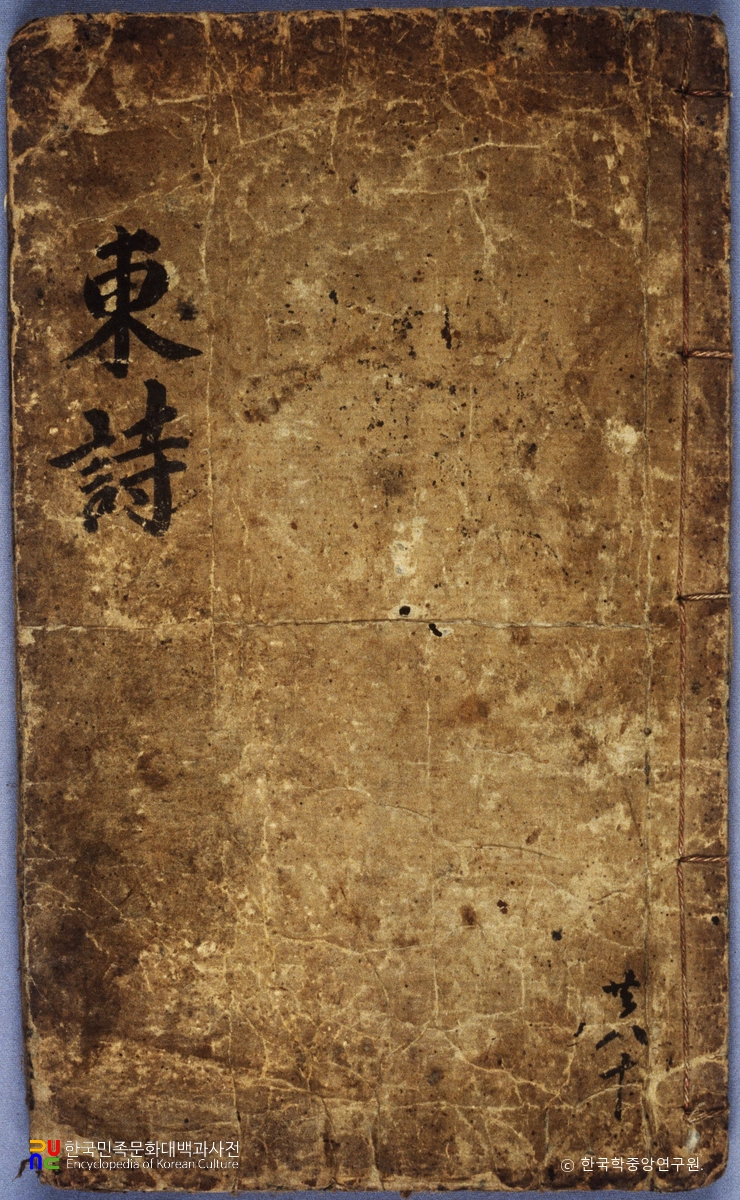 東詩
共八十
한국민족문화대백과사전
Encyclopedia of Korean Culture
© 한국학중앙연구원.